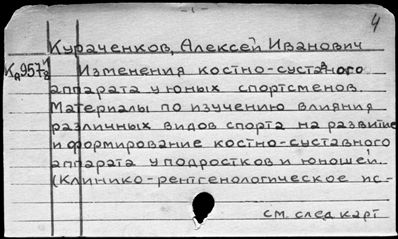 4
Кураченков, Алексей Иванович
Изменения костно-суставного
аппарата у юных спортсменов.
Материалы по изучению влияния
различных видов спорта на развитие
и формирование костно-суставного
аппарата у подростков и юношей.
(Клинико-рентгенологическое ис-
см. след карт